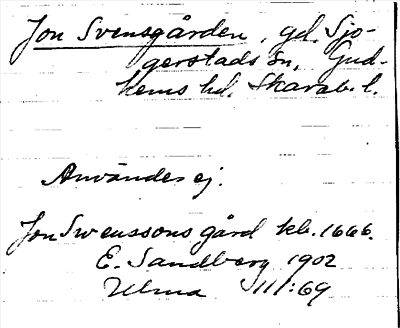 Jon Svensgården, gd. Sjo-
gerstads sn, Gud-
hems hd. Skarab. l.
Användes ej.
Jon Swenssons gård kb. 1666.
E. Sandberg 1902
Ulma III:69